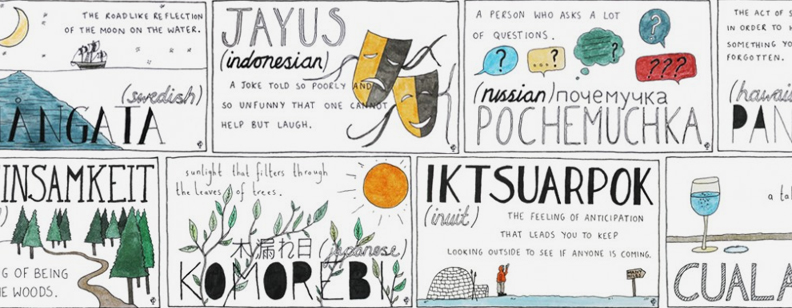 THE ROADLIKE REFLECTION
OF THE MOON ON THE WATER.
(swedish)
ÅNGATA
JAYUS
(indonesian)
A JOKE TOLD SO POORLY AND
SO UNFUNNY THAT ONE CANNOT
HELP BUT LAUGH.
A PERSON WHO ASKS A LOT
OF QUESTIONS.
?
...?
?
?
???
(russian) почемучка
POCHEMUCHKA
THE ACT OF S
IN ORDER TO
SOMETHING YO
FORGOTTEN.
(hawai
PAN
INSAMKEIT
G OF BEING
HE WOODS.
sunlight that filters through
the leaves of trees.
木漏れ日 (japanese)
KOMOREBI
IKTSUARPOK
(inuit)
THE FEELING OF ANTICIPATION
THAT LEADS YOU TO KEEP
LOOKING OUTSIDE TO SEE IF ANYONE IS COMING.
a ta
CUALA